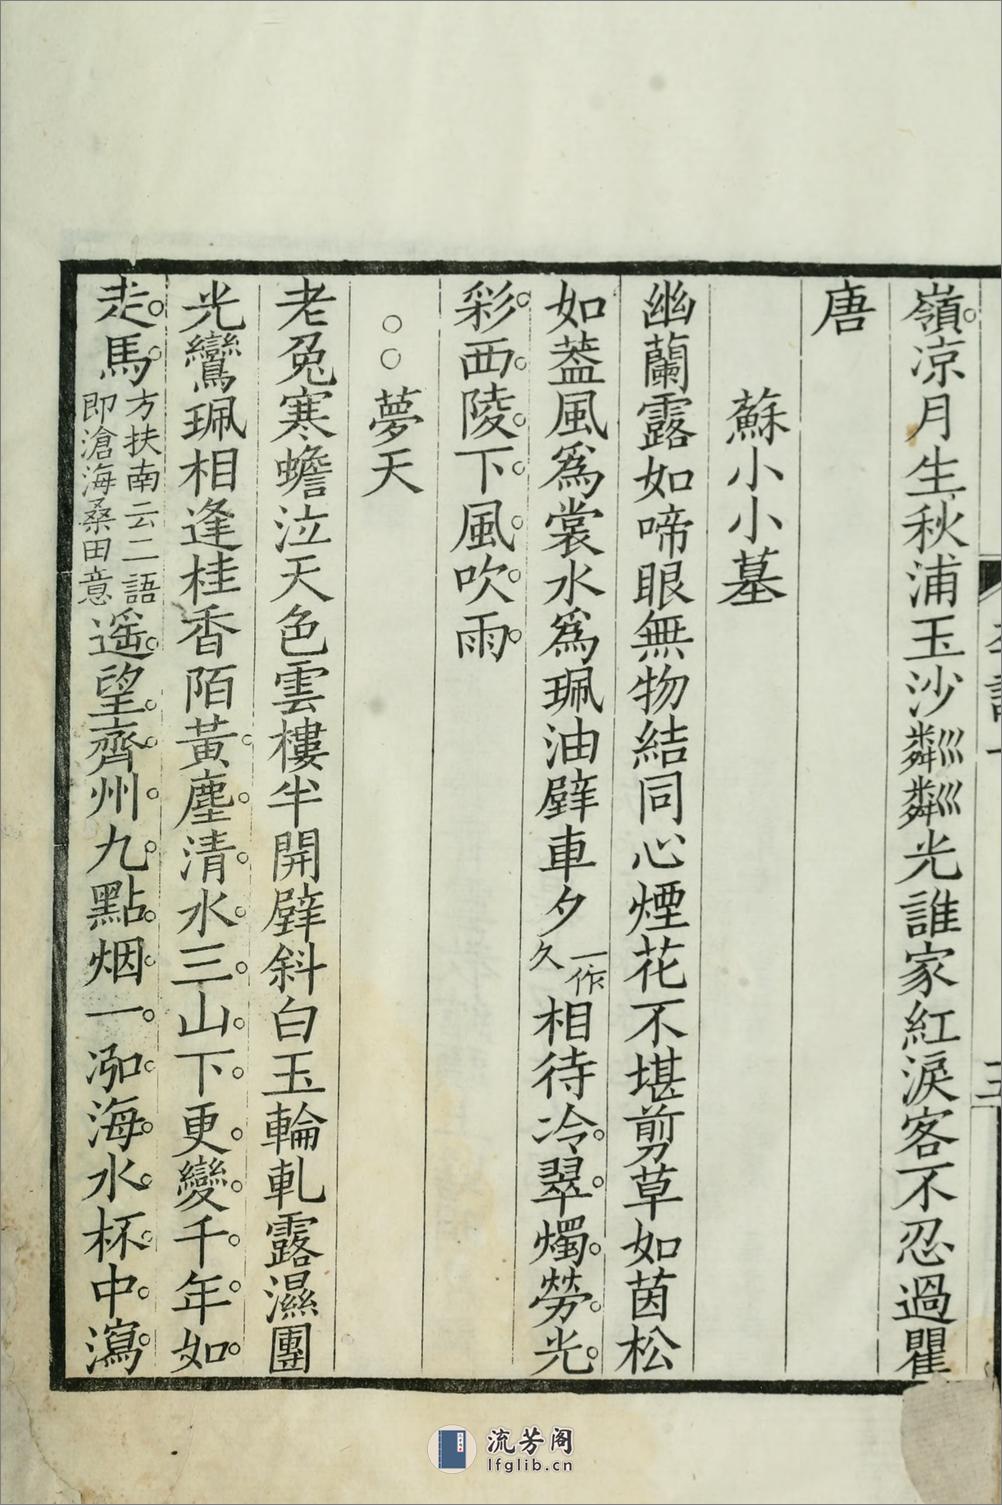 嶺凉月生秋浦玉沙粼粼光誰家紅淚客不忍過瞿
唐
蘇小小墓
幽蘭露如啼眼無物結同心煙花不堪剪草如茵松
如葢風爲裳水爲珮油壁車夕一作久相待冷翠燭勞光
彩西陵下風吹雨
夢天
老兔寒蟾泣天色雲樓半開壁斜白玉輪軋露濕團
光鸞珮相逢桂香陌黃塵清水三山下更變千年如
走馬方扶南云二語即滄海桑田意遥望齊州九點烟一泓海水杯中瀉
三
流芳阁
lfglib.cn